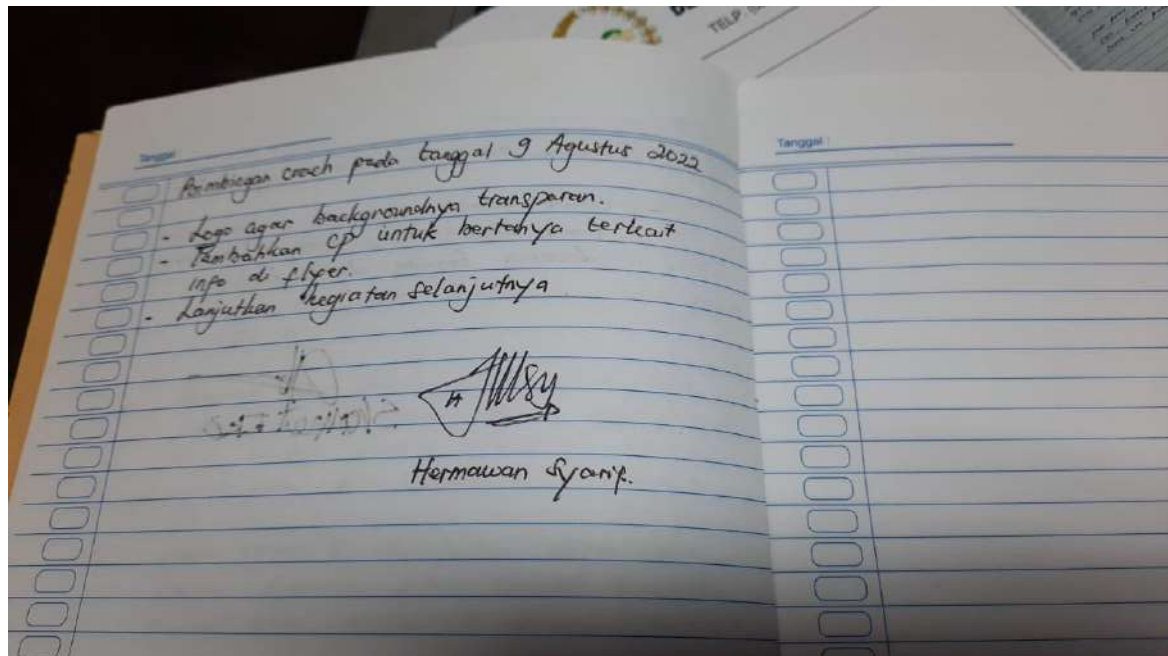 TELP. (0
Tanggal :
Tanggal :
Pembiegan coach pada tanggal 9 Agustus 2022
- Logo agar backgroundnya transparan.
- Tambahkan CP untuk bertanya terkait
info di flyer.
- Lanjutkan kegiatan selanjutnya
H
Hermawan Syarif.